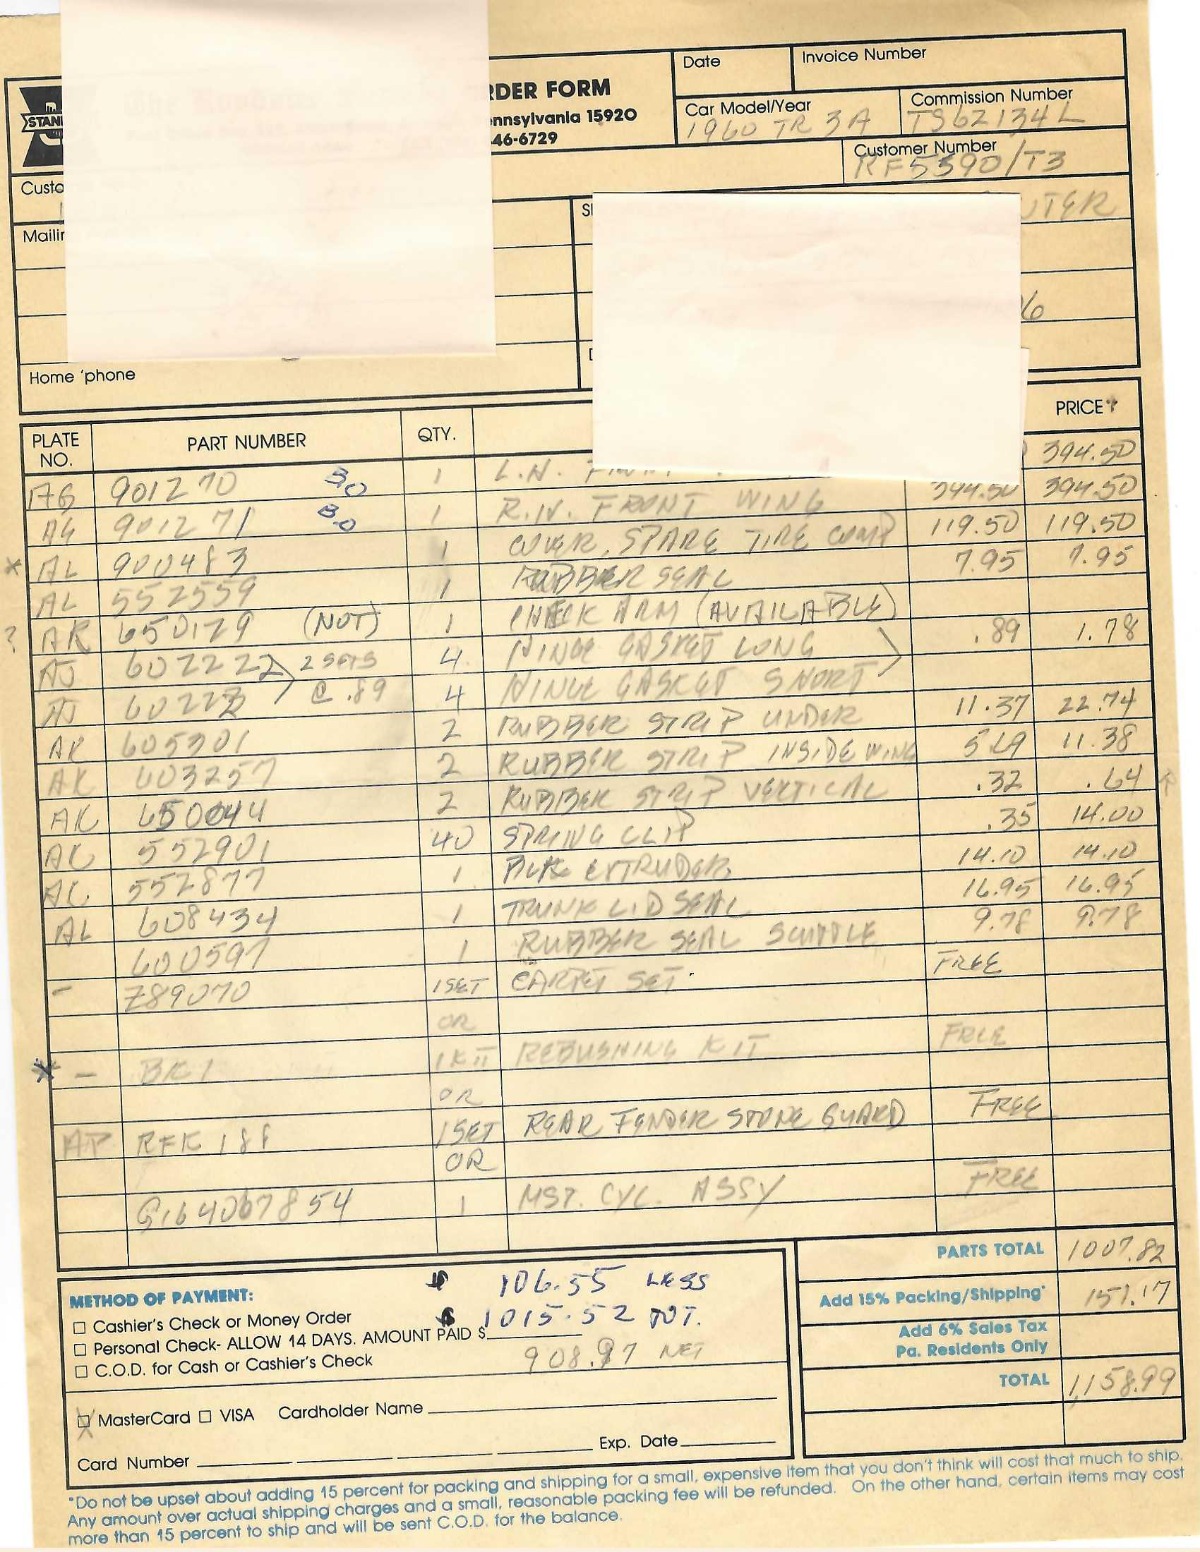 STAN
RDER FORM
nnsylvania 15920
46-6729
Date
Invoice Number
Car Model/Year
1960 TR 3A
Commission Number
TS62134L
Customer Number
RF5390/T3
Custo
Mailin
UTER
6
Home 'phone
PLATE NO. PART NUMBER QTY. PRICE
AG 901270 B.O 1 L.H. 394.50
AG 901271 B.O 1 R.H. FRONT WING 394.50 394.50
* AL 900483 1 COVER, SPARE TIRE COMP 119.50 119.50
AL 552559 1 RUBBER SEAL 7.95 7.95
? AK 650129 (NOT) 1 CHECK ARM (AVAILABLE)
AJ 602222 2 SETS 4 HINGE GASKET LONG .89 1.78
AJ 60222 @ .89 4 HINGE GASKET SHORT
AK 605301 2 RUBBER STRIP UNDER 11.37 22.74
AK 603257 2 RUBBER STRIP INSIDE WING 5.69 11.38
AK 650044 2 RUBBER STRIP VERTICAL .32 .64
AK 552901 40 SPRING CLIP .35 14.00
AL 552877 1 BLK EXTRUDER 14.10 14.10
AL 608434 1 TRUNK LID SEAL 16.95 16.95
600597 1 RUBBER SEAL SCUTTLE 9.78 9.78
- Z89070 1 SET CARPET SET FREE
OR
* - BK1 1 KIT REBUSHING KIT FREE
OR
AP RFK 188 1 SET REAR FENDER STONE GUARD FREE
OR
G164067854 1 MST. CYL. ASSY FREE
PARTS TOTAL 1007.82
Add 15% Packing/Shipping* 151.17
Add 6% Sales Tax
Pa. Residents Only
TOTAL 1,158.99
METHOD OF PAYMENT:
$ 106.55 LESS
☐ Cashier's Check or Money Order
$ 1015.52 TOT.
☐ Personal Check- ALLOW 14 DAYS. AMOUNT PAID $
☐ C.O.D. for Cash or Cashier's Check
908.97 NET
☒ MasterCard ☐ VISA Cardholder Name
Card Number Exp. Date
*Do not be upset about adding 15 percent for packing and shipping for a small, expensive item that you don't think will cost that much to ship.
Any amount over actual shipping charges and a small, reasonable packing fee will be refunded. On the other hand, certain items may cost
more than 15 percent to ship and will be sent C.O.D. for the balance.